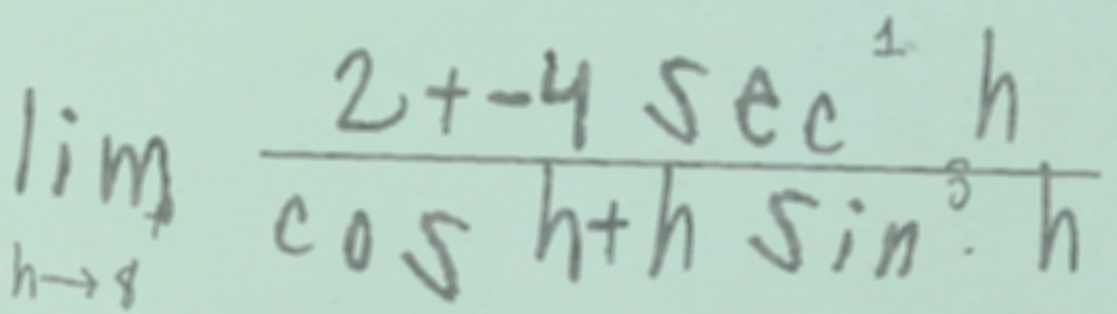 \lim_{h \to 8} \frac{2 + -4 \sec^{1} h}{\cos h + h \sin^{3} h}